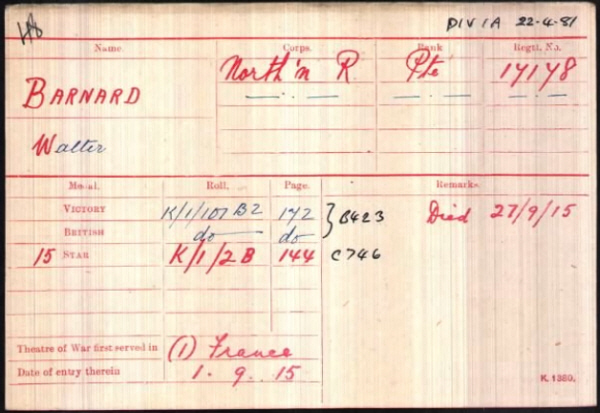 H8
DIV 1A 22-4-81
Name. Corps. Rank Regtl. No.
BARNARD North'n R. Pte 17178
Walter
Medal. Roll. Page. Remarks.
VICTORY K/1/107 B2 172 } B423 Died 27/9/15
BRITISH do do
15 STAR K/1/2 B 144 C746
Theatre of War first served in (1) France
Date of entry therein 1. 9. 15
K. 1380.